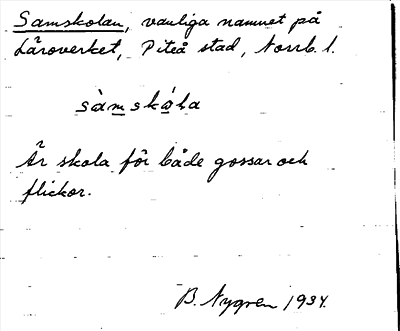 Samskolan, vanliga namnet på
Läroverket, Piteå stad, Norrb. l.
sàmskǻla
Är skola för både gossar och
flickor.
B. Nygren 1934.